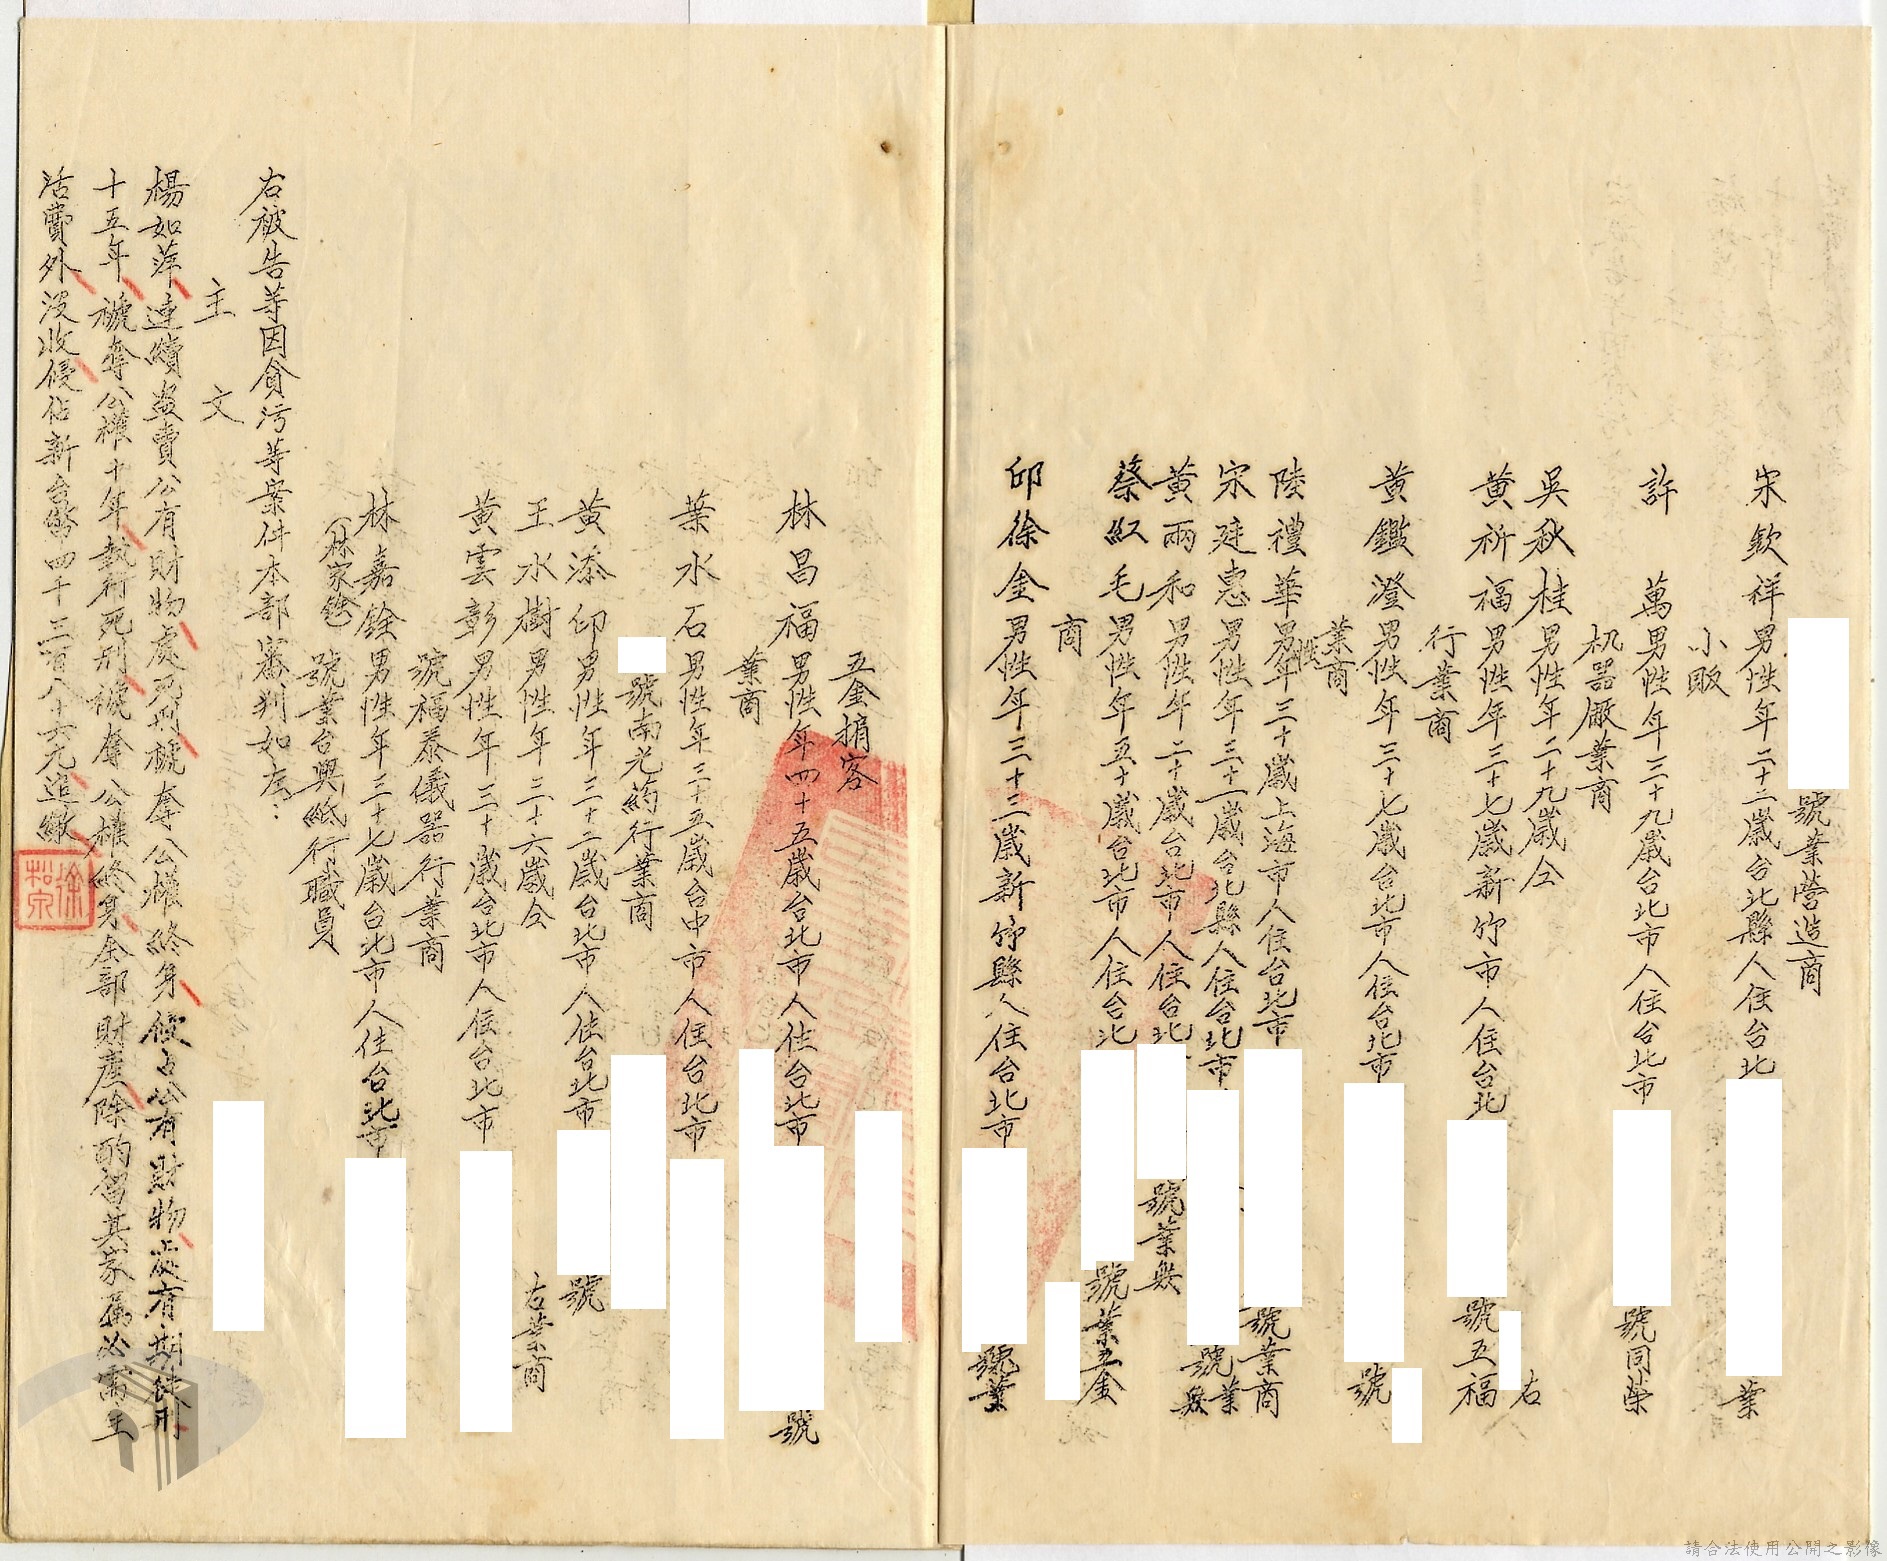 號業營造商
宋欽祥男性年二十二歲台北縣人住台北 業
小販
許萬男性年三十九歲台北市人住台北市 號同榮
机器廠業商
吳秋桂男性年二十九歲仝 右
黃祈福男性年三十七歲新竹市人住台北 號五福
行業商
黃鑑澄男性年三十七歲台北市人住台北市 號
業商
陸禮華男性年三十歲上海市人住台北市 號業商
宋建惠男性年三十一歲台北縣人住台北市 號業無
黃兩和男性年二十歲台北市人住台北 號業無
蔡紅毛男性年五十歲台北市人住台北 號業五金
商
邱徐金男性年三十三歲新竹縣人住台北市 號業
五金捐客
林昌福男性年四十五歲台北市人住台北市 號
業商
葉水石男性年三十五歲台中市人住台北市
號南光葯行業商
黃添印男性年三十二歲台北市人住台北市 號
王水樹男性年三十六歲仝 右業商
號福泰儀器行業商
黃雲彰男性年三十歲台北市人住台北市
林嘉銓男性年三十七歲台北市人住台北市
(林家銓)
號業台興紙行職員
右被告等因貪污等案件本部審判如左:
主文
楊如萍連續盜賣公有財物處死刑褫奪公權終身侵占公有財物處有期徒刑
十五年褫奪公權十年執行死刑褫奪公權終身全部財產除酌留其家屬必需生
活費外沒收侵佔新台幣四千三百八十六元追繳
徐松泉
請合法使用公開之影像